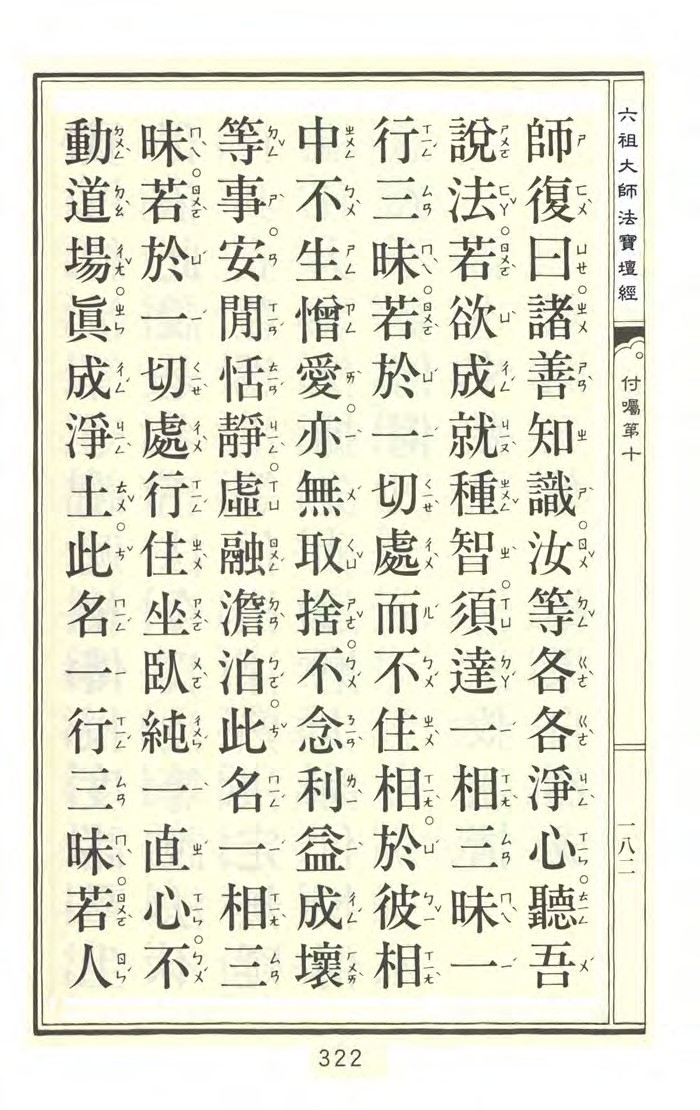 六祖大師法寶壇經
付囑第十
一八二
師復曰。諸善知識。汝等各各淨心。聽吾
說法。若欲成就種智。須達一相三昧一
行三昧。若於一切處而不住相。於彼相
中不生憎愛。亦無取捨。不念利益成壞
等事。安閒恬靜。虛融澹泊。此名一相三
昧。若於一切處行住坐臥純一直心。不
動道場。眞成淨土。此名一行三昧。若人
322